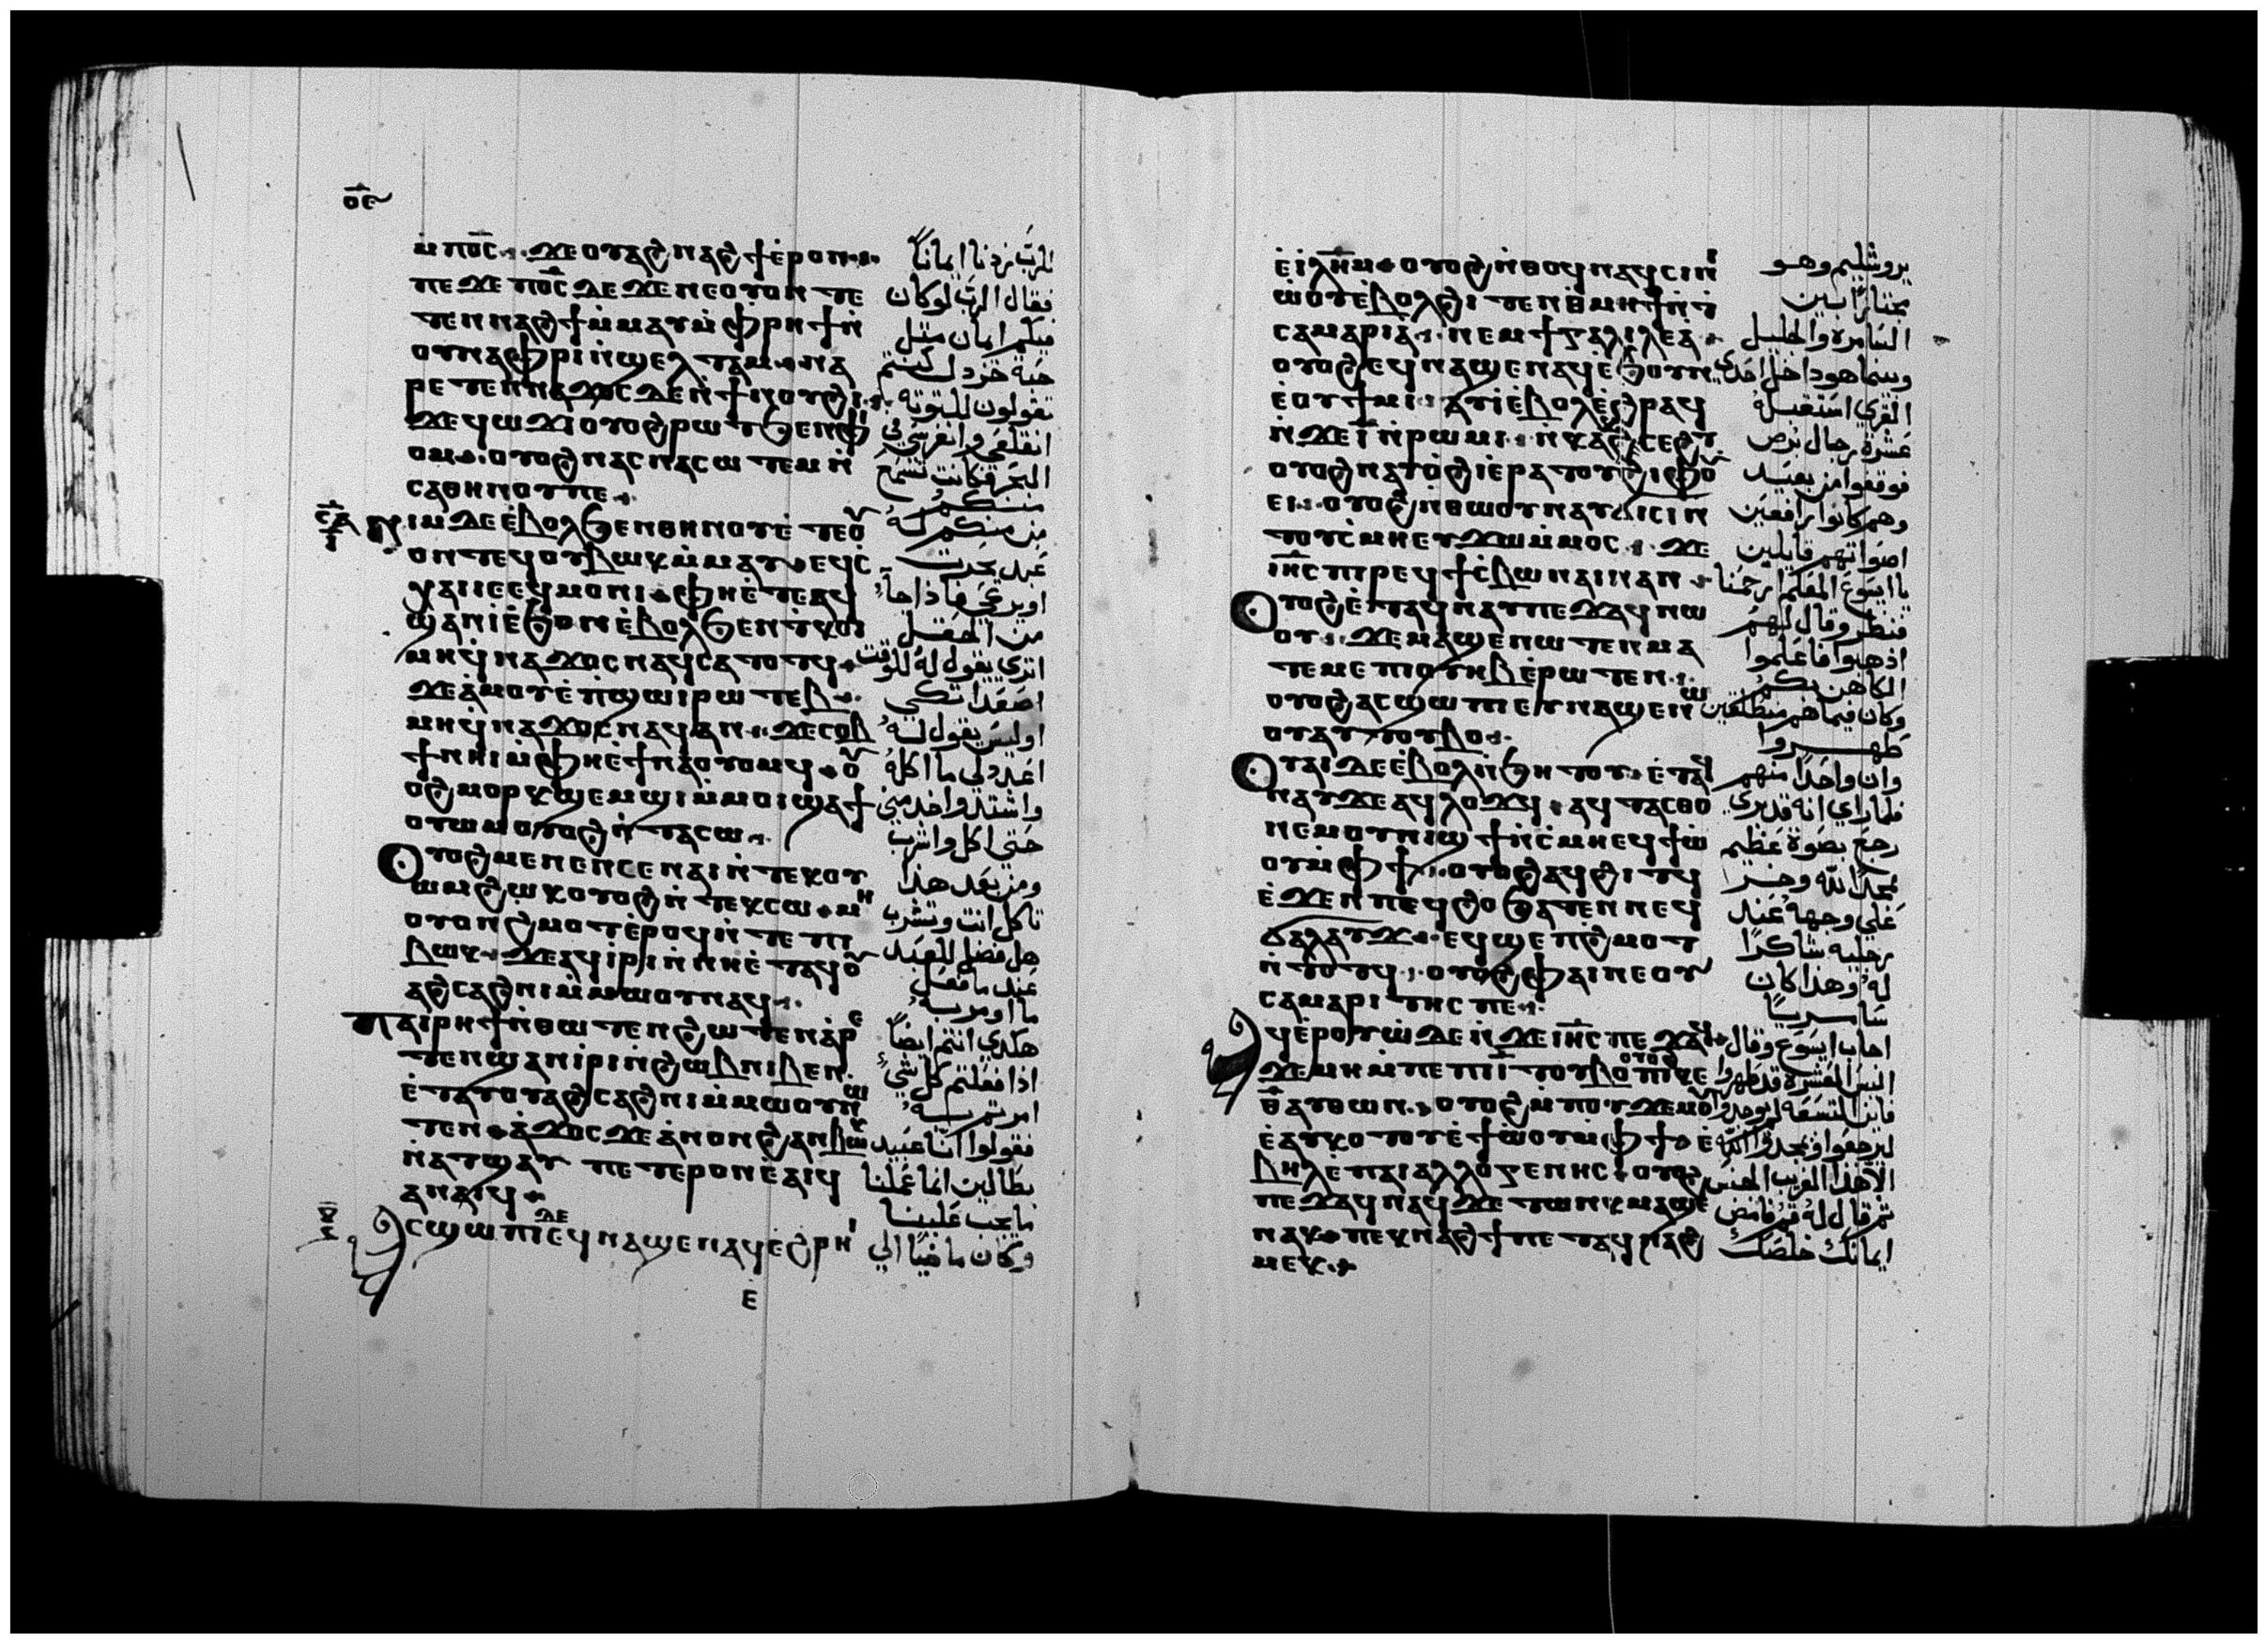 ⲟⲋ
ⲙⲡⲟ̅ⲥ̅ ϫⲉⲟⲩⲁϩⲛⲁϩϯⲉ̀ⲣⲟⲛ
ⲡⲉϫⲉ ⲡⲟ̅ⲥ̅ ⲇⲉ ϫⲉⲛⲉⲟⲩⲟⲛ ⲧⲉ
ⲧⲉⲛⲛⲁϩϯⲙ̀ⲙⲁⲩⲙ̀ⲫⲣⲏϯⲛ̀
ⲟⲩⲛⲁⲫⲣⲓⲛ̀ϣⲉⲗⲧⲁⲙ ⲛⲁ
ⲣⲉⲧⲉⲛⲛⲁϫⲟⲥ ⲇⲉⲛ̀ϯⲛⲟⲩϩⲓ
ϫⲉϥⲱϫⲓ ⲟⲩⲟϩⲣⲱⲧϧⲉⲛⲫⲓ
ⲟⲙ ⲟⲩⲟϩ ⲛⲁⲥⲛⲁⲥⲱⲧⲉⲙ ⲛ̀
ⲥⲁⲑⲏⲛⲟⲩⲡⲉ
ⲛⲓⲙ ⲇⲉⲉ̀ⲃⲟⲗϧⲉⲛⲑⲏⲛⲟⲩⲉ̀ⲧⲉⲟⲩ
ⲟⲛⲧⲉϥⲟⲩⲃⲱⲕⲙ̀ⲙⲁⲩ ⲉϥⲥ̀
ⲭⲁⲓⲓⲉⲉϥⲙⲟⲛⲓ ⲫⲏⲉ̀ⲧⲉⲁϥ
ϣⲁⲛⲓ̀ⲉ̀ϧⲟⲩⲛⲉ̀ⲃⲟⲗϧⲉⲛⲧ̀ⲕⲟⲓ
ⲙⲏϥ̀ⲛⲁϫⲟⲥ ⲛⲁϥⲥⲁⲧⲟⲧϥ
ϫⲉⲁ̀ⲙⲟⲩⲉ̀ⲡ̀ϣⲱⲓⲣⲱⲧⲉⲃ
ⲙⲏϥ̀ⲛⲁϫⲟⲥ ⲛⲁϥⲁⲛ ϫⲉⲥⲟⲃ
ϯⲛⲏⲓⲙ̀ⲫⲏⲉ̀ϯⲛⲁⲟⲩⲟⲙϥ ⲟⲩ
ⲟϩ ⲙⲟⲣⲕϣⲉⲙϣⲓⲙ̀ⲙⲟⲓϣⲁϯ
ⲟⲩⲱⲙⲟⲩⲟϩⲛ̀ⲧⲁⲥⲱ
ⲟⲩⲟϩⲙⲉⲛⲉⲛⲥⲉⲛⲁⲓⲛ̀ⲧⲉⲕⲟⲩ
ⲱⲙϩⲱⲕⲟⲩⲟϩⲛ̀ⲧⲉⲕⲥⲱ ⲙⲏ
ⲟⲩⲟⲛϩ̀ⲙⲟⲧⲉ̀ⲣⲟϥⲛ̀ⲧⲉⲡⲓ
ⲃⲱⲕ ϫⲉⲁϥⲓ̀ⲣⲓⲛ̀ⲛⲏⲉ̀ⲧⲁⲩⲟⲩ
ⲁϩⲥⲁϩⲛⲓⲙ̀ⲙⲱⲟⲩⲛⲁϥ
ⲡⲁⲓⲣⲏϯⲛ̀ⲑⲱⲧⲉⲛϩⲱⲧⲉⲛⲁⲣⲉ
ⲧⲉⲛϣⲁⲛⲓ̀ⲣⲓⲛ̀ϩⲱⲃⲛⲓⲃⲉⲛ
ⲉ̀ⲧⲁⲩⲟⲩⲁϩⲥⲁϩⲛⲓⲙ̀ⲙⲱⲟⲩⲛⲱ
ⲧⲉⲛ ⲁ̀ϫⲟⲥ ϫⲉⲁ̀ⲛⲟⲛϩ̀ⲁⲛⲃⲱⲕ
ⲛ̀ⲁⲧϣⲁⲩ ⲡⲉⲧⲉⲣⲟⲛⲉ̀ⲁⲓϥ
ⲁⲛⲁⲓϥ
ⲁⲥϣⲱⲡⲓⲇⲉⲉϥⲛⲁϣⲉⲛⲁϥⲉ̀ϩ̀ⲣⲏⲓ
ⲉ
للرب زدنا ايماناً
فقال الرب لو كان
فيكم ايمان مثل
حبة خردل كنتم
تقولون للتوته
انقلعي وانغرسي في
البحر فكانت تسمع
منكم
من منكم له
عبد يحرث
او يرعي فاذا جا
من الحقل
اتري يقول له للوقت
اصعد اتكي
اوليس يقول له
اعد لي ما اكله
واشتد واخدمني
حتي اكل واشرب
ومن بعد هذا
تاكل انت وتشرب
هل فضل للعبد
عند ما فعل
ما اومر به
هكدي انتم ايضاً
اذا فعلتم كل شي
امرتم به
فقولوا اننا عبيد
بطالين انما عملنا
ما يجب علينا
وكان ماضيًا الي
ⲉ̀ⲓ̅ⲗ̅ⲏ̅ⲙ̅ ⲟⲩⲟϩ ⲛ̀ⲑⲟϥ ⲛⲁϥⲥⲓⲛⲓ
ⲱ̀ⲟⲩⲉ̀ⲃⲟⲗϩⲓⲧⲉⲛⲑ̀ⲙⲏϯⲛ̀ϯ
ⲥⲁⲙⲁⲣⲓⲁ̀ ⲛⲉⲙϯⲅⲁⲗⲓⲗⲉⲁ̀
ⲟⲩⲟϩ ⲉϥⲛⲁϣⲉⲛⲁϥⲉ̀ϧⲟⲩⲛ
ⲉ̀ⲟⲩϯⲙⲓ ⲁⲩⲓ̀ⲉ̀ⲃⲟⲗⲉ̀ϩ̀ⲣⲁϥ
ⲛ̀ϫⲉⲓ̅ⲛ̀ⲣⲱⲙⲓ ⲛ̀ⲕⲁⲕⲥⲉϩⲧ
ⲟⲩⲟϩⲛⲁⲩⲟ̀ϩⲓⲉ̀ⲣⲁⲧⲟⲩϩⲓⲫⲟⲩ
ⲉⲓ ⲟⲩⲟϩ ⲛ̀ⲑⲱⲟⲩⲛⲁⲩϭⲓⲥⲓⲛ̀
ⲧⲟⲩⲥ̀ⲙⲏⲉⲩϫⲱⲙ̀ⲙⲟⲥ ϫⲉ
ⲓ̅ⲏ̅ⲥ̅ ⲡⲓⲣⲉϥϯⲥ̀ⲃⲱⲛⲁⲓⲛⲁⲛ
ⲟⲩⲟϩⲉ̀ⲧⲁϥⲛⲁⲩⲡⲉϫⲁϥⲛⲱ
ⲟⲩ ϫⲉⲙⲁϣⲉⲛⲱⲧⲉⲛⲙⲁ
ⲧⲁⲙⲉⲡⲓⲟⲩⲏⲃⲉ̀ⲣⲱⲧⲉⲛ
ⲟⲩⲟϩ ⲁⲥϣⲱⲡⲓⲉⲩⲛⲁϣⲉⲛⲱ
ⲟⲩⲁⲩⲧⲟⲩⲃⲟ
ⲟⲩⲁⲓ ⲇⲉⲉ̀ⲃⲟⲗⲛ̀ϧⲏⲧⲟⲩ ⲉ̀ⲧⲁϥ
ⲛⲁⲩϫⲉⲁϥⲗⲟϫϥ ⲁϥⲧⲁⲥⲑⲟ
ⲛⲉⲙⲟⲩⲛⲓϣϯⲛ̀ⲥ̀ⲙⲏⲉϥϯⲱ̀
ⲟⲩⲙ̀ⲫϯ ⲟⲩⲟϩⲁϥϩⲓⲧϥ
ⲉ̀ϫⲉⲛⲡⲉϥϩⲟϧⲁⲧⲉⲛⲛⲉϥ
ϭⲁⲗⲁⲩϫ ⲉϥϣⲉⲡϩ̀ⲙⲟⲧ
ⲛ̀ⲧⲟⲧϥ ⲟⲩⲟϩⲫⲁⲓⲛⲉⲟⲩ
ⲥⲁⲙⲁⲣⲓⲧⲏⲥ ⲡⲉ
ⲁϥⲉ̀ⲣⲟⲩⲱ̀ ⲇⲉⲛ̀ϫⲉⲓ̅ⲏ̅ⲥ̅ ⲡⲉϫⲁϥ
ϫⲉⲙⲏⲙ̀ⲡⲉⲡⲓⲓ̅ ⲧⲟⲩⲃⲟ ⲟⲩⲟϩ ⲡⲓⲕⲉ
ⲑ̅ⲁⲩⲑⲱⲛ ⲟⲩⲟϩⲙ̀ⲡⲟⲩϫⲉⲙⲟⲩ
ⲉ̀ⲁⲩⲕⲟⲧⲟⲩⲉ̀ϯⲱ̀ⲟⲩⲙ̀ⲫϯ ⲉ̀
ⲃⲏⲗⲉ̀ⲡⲁⲓⲁⲗⲗⲟⲅⲉⲛⲏⲥ ⲟⲩⲟϩ
ⲡⲉϫⲁϥⲛⲁϥ ϫⲉⲧⲱⲛⲕⲙⲁϣⲉ
ⲛⲁⲕ ⲡⲉⲕⲛⲁϩϯⲡⲉⲧⲁϥⲛⲁϩ
ⲙⲉⲕ
يروشليم وهو
مجتازًا بين
السامره والجليل
وبينما هو داخل احدي
القري استقبله
عشرة رجال برص
فوقفوا من بعيد
وهم كانوا رافعين
اصواتهم قايلين
يا ايسوع المعلم ارحمنا
فنظر وقال لهم
اذهبوا فاعلموا
الكاهن بكم
وكان فيما هم منطلقين
طهروا
وان واحدًا منهم
فلما راي انه قد بري
رجع بصوة عظيم
يمجد الله وخر
علي وجهه عند
رجليه شاكرًا
له وهذا كان
سامريًا
اجاب ايسوع وقال
اليس العشرة قد طهروا
فاين التسعه لم يوجدوا
ليرجعوا ويمجدوا الله
الا هذا الغريب الجنس
ثم قال له قم فامض
ايمانك خلصك